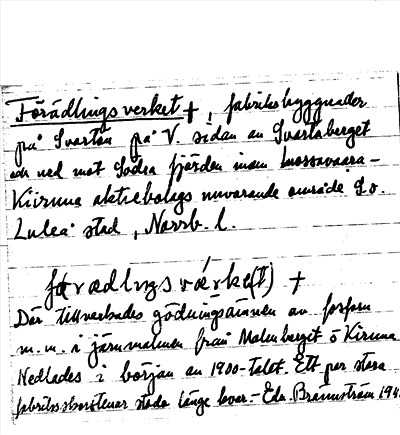 Förädlingsverket +, fabriksbyggnader
på Svartön på V. sidan av Svartöberget
och ned mot Södra fjärden inom Luossavaara-
Kiiruna aktiebolags nuvarande område i
Luleå stad, Norrb. l.
+
Där tillverkades gödningsämnen av forforn
m.m. i järnmalmen från Malmberget o Kiruna
Nedlades i början av 1900-talet. Ett par stora
fabriksskorstenar stodo länge kvar. - Edv. Brännström 194